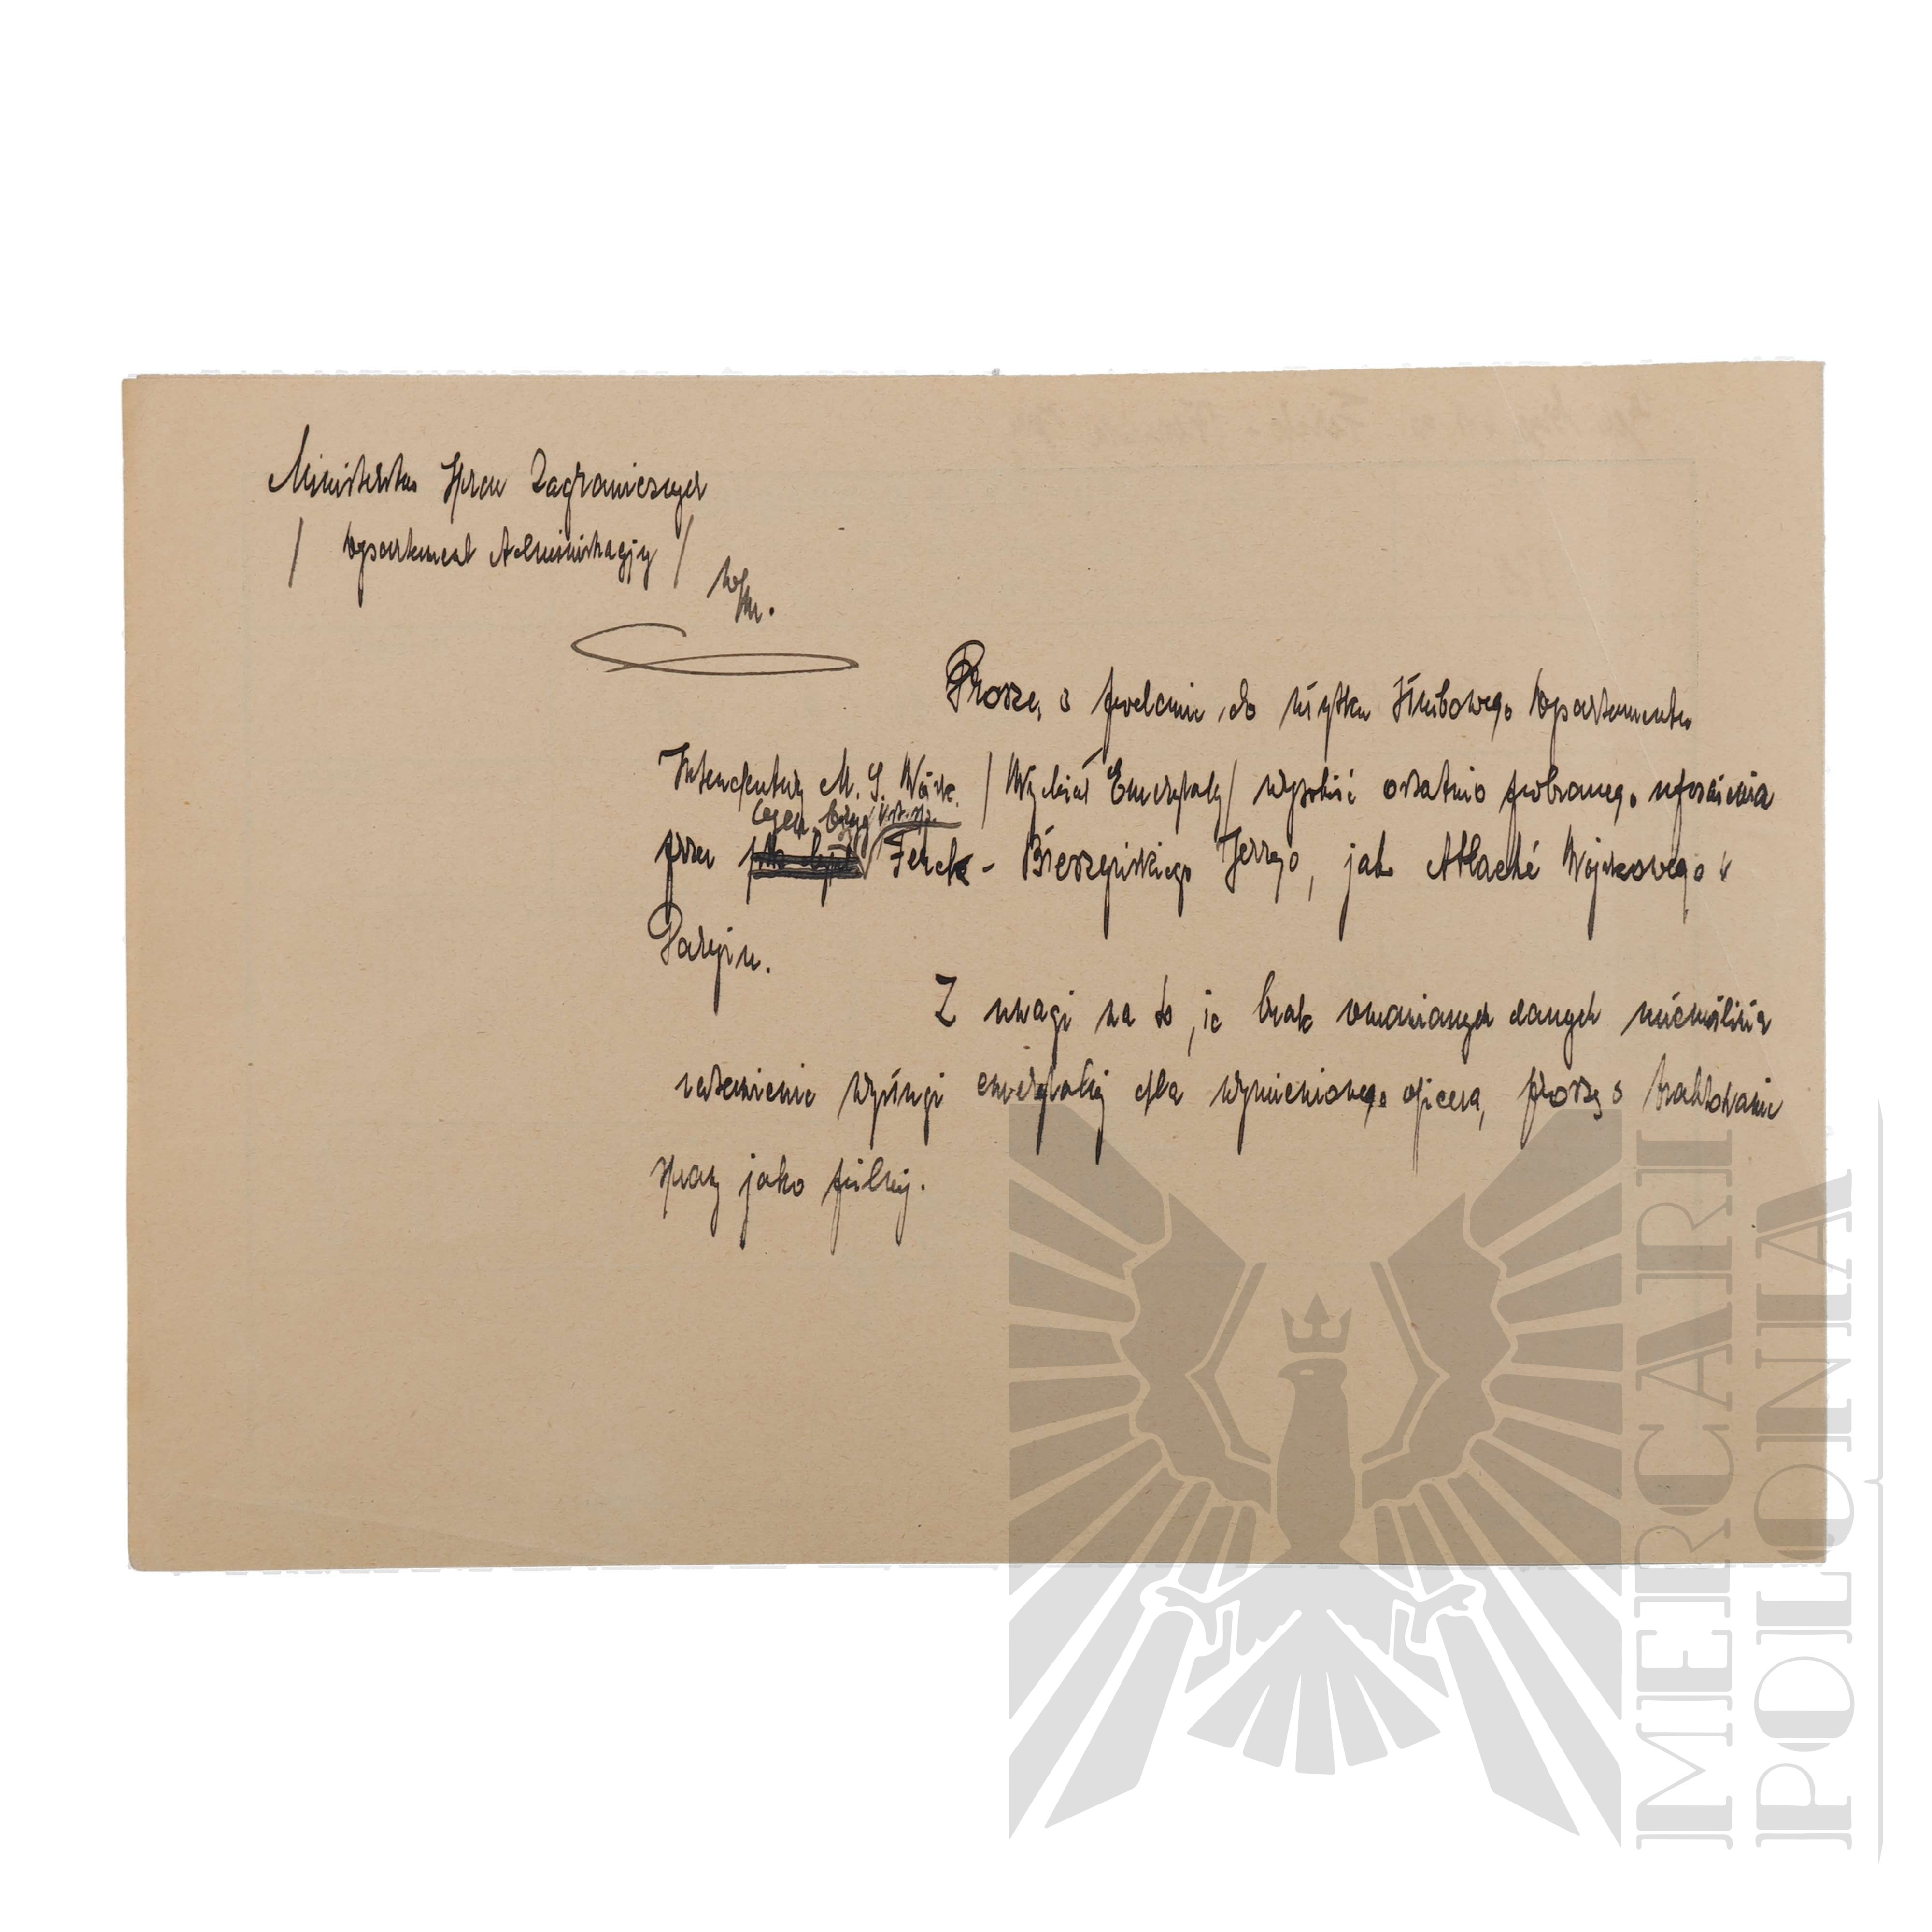 Ministerstwo Spraw Zagranicznych
/ Departament Administracyjny /
w/m.
Proszę o podanie do użytku służbowego Departamentu
Intendentury M. S. Wojsk. / Wydział Emerytalny / wysokość ostatnio pobranego uposażenia
gen. bryg.
przez Ferek-Błeszyńskiego Jerzego, jako Attaché Wojskowego w
Paryżu.
Z uwagi na to, że brak omawianych danych uniemożliwia
ustalenie wysługi emerytalnej dla wymienionego oficera, proszę o traktowanie
sprawy jako pilnej.
IMERCARI
POLONIA